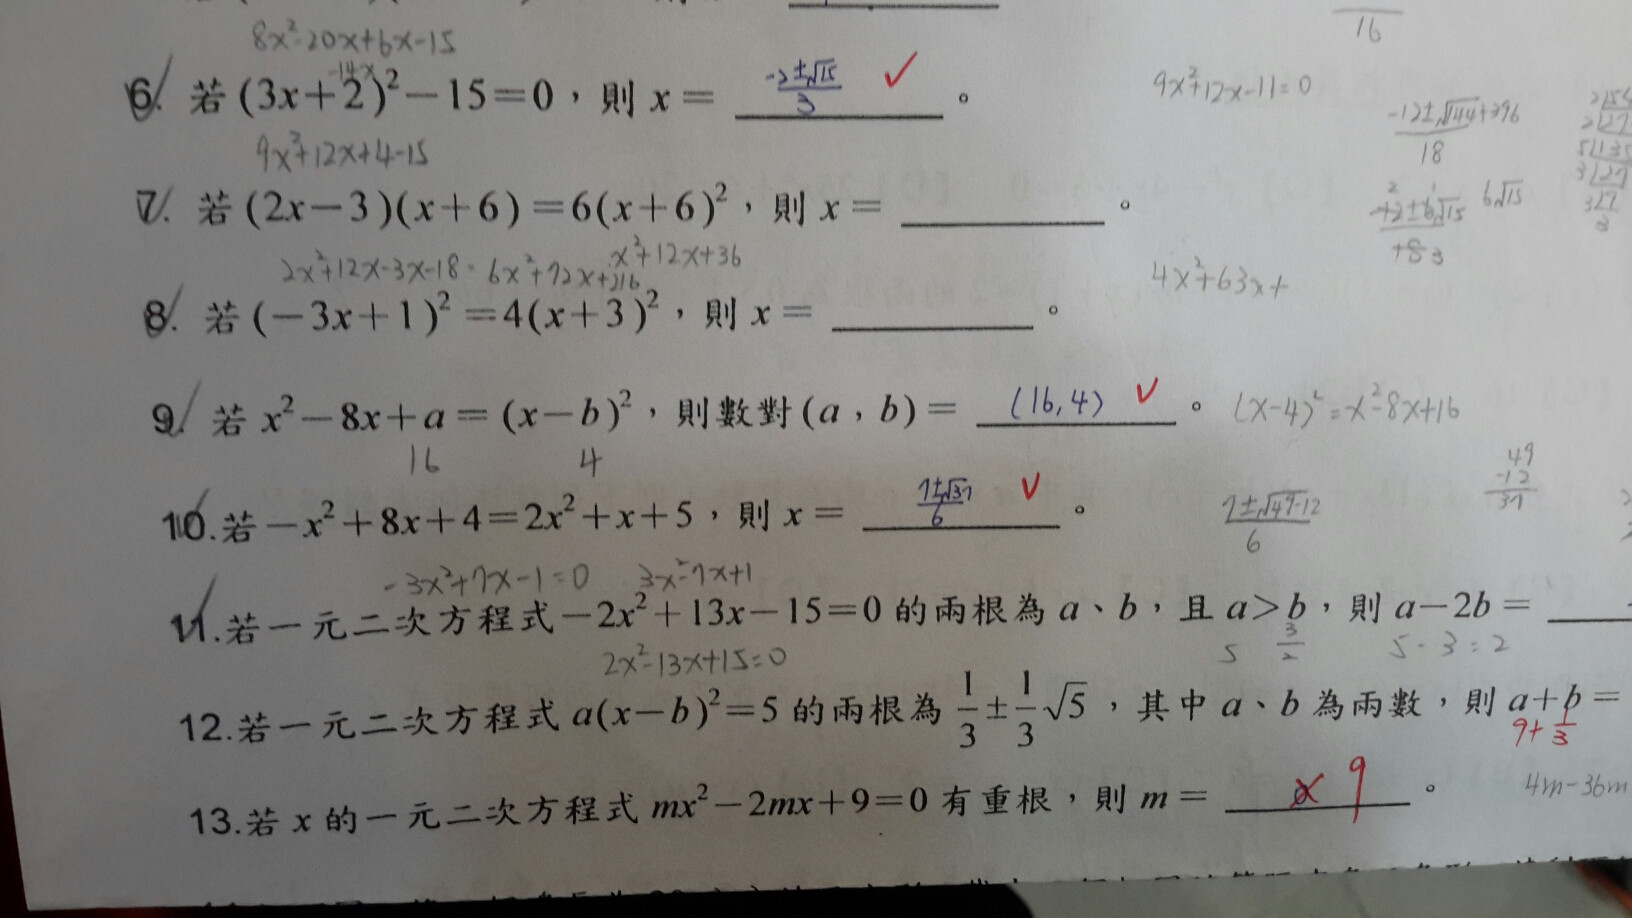 16
8x²-20x+6x-15
-14x
6. 若(3x+2)²-15=0，則 x= -2±√15/3 ✓。
9x²+12x-11=0
9x²+12x+4-15
-12±√144+396/18
7. 若(2x-3)(x+6)=6(x+6)²，則 x=。
6√15
x²+12x+36
2x²+12x-3x-18=6x²+72x+216
4x²+63x+
8. 若(-3x+1)²=4(x+3)²，則 x=。
9. 若 x²-8x+a=(x-b)²，則數對(a，b)= (16,4) ✓。 (x-4)²=x²-8x+16
16 4
49
-12
37
10.若-x²+8x+4=2x²+x+5，則 x= 7±√37/6 ✓。
7±√49-12/6
-3x²+7x-1=0 3x²-7x+1
11.若一元二次方程式-2x²+13x-15=0 的兩根為 a、b，且 a>b，則 a-2b=
2x²-13x+15=0
5 3/2 5-3=2
12.若一元二次方程式 a(x-b)²=5 的兩根為 1/3±1/3√5，其中 a、b 為兩數，則 a+b=
9+1/3
13.若 x 的一元二次方程式 mx²-2mx+9=0 有重根，則 m= 9。
4m-36m